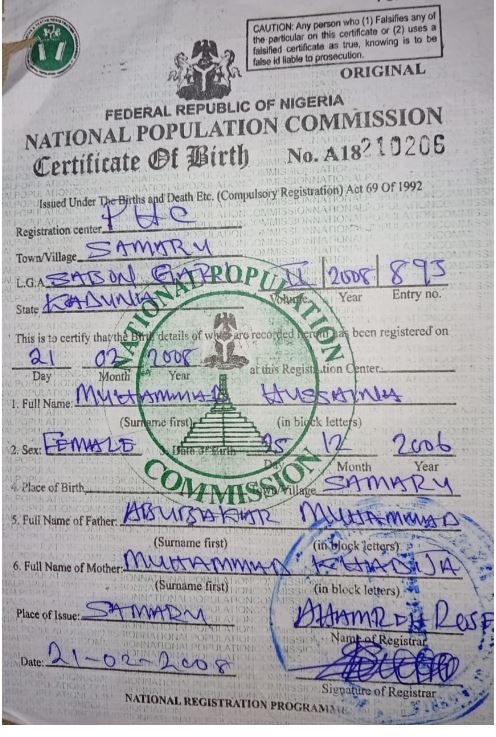 CAUTION: Any person who (1) Falsifies any of
the particular on this certificate or (2) uses a
falsified certificate as true, knowing is to be
false id liable to prosecution.
ORIGINAL
FEDERAL REPUBLIC OF NIGERIA
NATIONAL POPULATION COMMISSION
Certificate Of Birth No. A18210206
Issued Under The Births and Death Etc. (Compulsory Registration) Act 69 Of 1992
Registration center PHC
Town/Village SAMARU
L.G.A SABON GARI II 2008 893
Volume Year Entry no.
State KADUNA
This is to certify that the Birth details of which are recorded herein has been registered on
21 02 2008 at this Registration Center
Day Month Year
1. Full Name: MUHAMMAD HUSSAINA
(Surname first) (in block letters)
2. Sex: FEMALE 3. Date of Birth 25 12 2006
Day Month Year
4. Place of Birth Town/Village SAMARU
5. Full Name of Father: ABUBAKAR MUHAMMAD
(Surname first) (in block letters)
6. Full Name of Mother: MUHAMMAD KHADIJA
(Surname first) (in block letters)
Place of Issue: SAMARU
Name of Registrar
Date: 21-02-2008
Signature of Registrar
NATIONAL REGISTRATION PROGRAMME
NATIONAL POPULATION COMMISSION